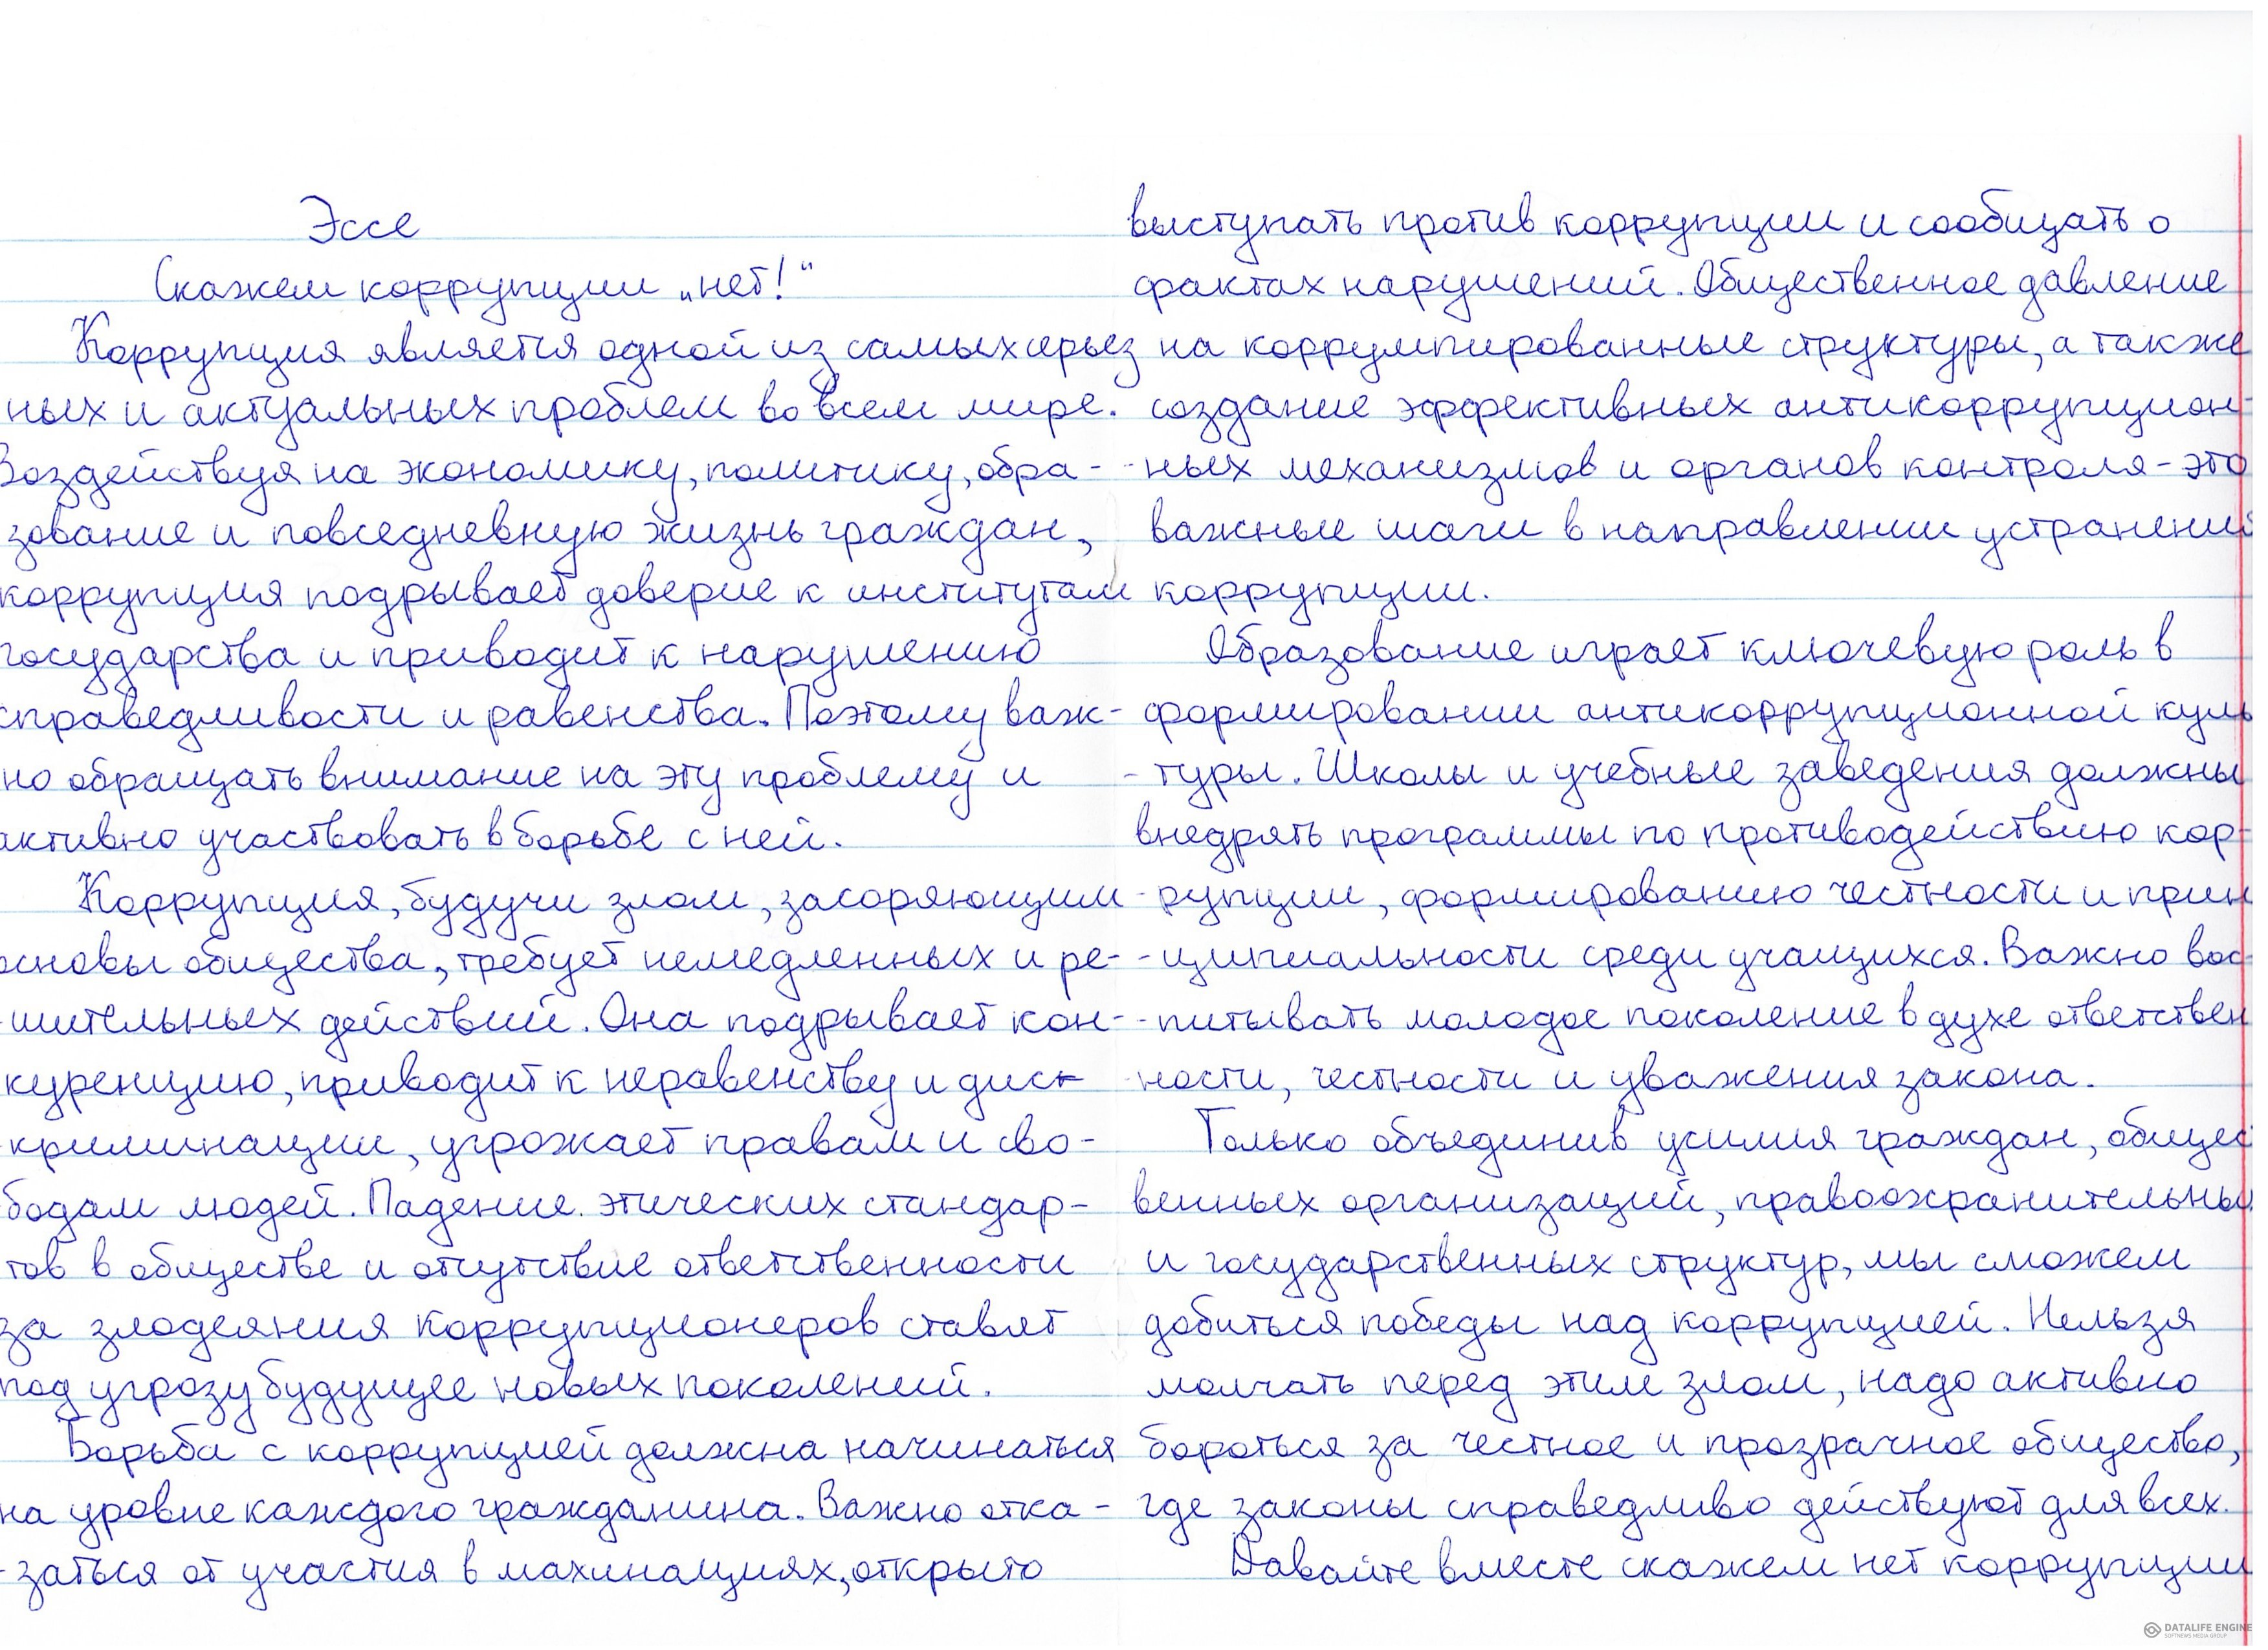 Эссе
Скажем коррупции „нет!“
Коррупция является одной из самых серьез
ных и актуальных проблем во всем мире.
Воздействуя на экономику, политику, обра-
зование и повседневную жизнь граждан,
коррупция подрывает доверие к институтам
государства и приводит к нарушению
справедливости и равенства. Поэтому важ-
но обращать внимание на эту проблему и
активно участвовать в борьбе с ней.
Коррупция, будучи злом, засоряющим
основы общества, требует немедленных и ре-
-шительных действий. Она подрывает кон-
куренцию, приводит к неравенству и диск
-криминации, угрожает правам и сво-
бодам людей. Падение этических стандар-
тов в обществе и отсутствие ответственности
за злодеяния коррупционеров ставят
под угрозу будущее новых поколений.
Борьба с коррупцией должна начинаться
на уровне каждого гражданина. Важно отка-
-заться от участия в махинациях, открыто
выступать против коррупции и сообщать о
фактах нарушений. Общественное давление
на коррумпированные структуры, а также
создание эффективных антикоррупцион-
-ных механизмов и органов контроля - это
важные шаги в направлении устранений
коррупции.
Образование играет ключевую роль в
формировании антикоррупционной куль
-туры. Школы и учебные заведения должны
внедрять программы по противодействию кор-
-рупции, формированию честности и прин
-ципиальности среди учащихся. Важно вос
-питывать молодое поколение в духе ответствен
-ности, честности и уважения закона.
Только объединив усилия граждан, общес
венных организаций, правоохранительны
и государственных структур, мы сможем
добиться победы над коррупцией. Нельзя
молчать перед этим злом, надо активно
бороться за честное и прозрачное общество,
где законы справедливо действуют для всех.
Давайте вместе скажем нет коррупции
DATALIFE ENGINE
SOFTNEWS MEDIA GROUP